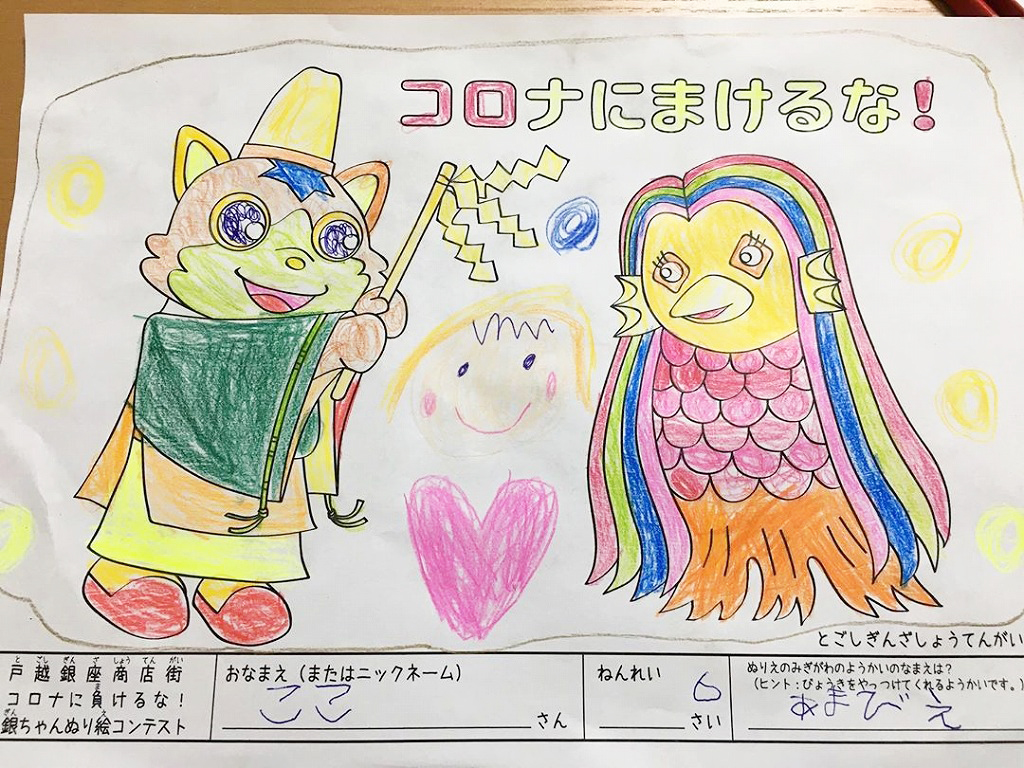 コロナにまけるな!
とごしぎんざしょうてんがい
戸越銀座商店街
コロナに負けるな!
銀ちゃんぬり絵コンテスト
おなまえ(またはニックネーム)
ここ
さん
ねんれい
6
さい
ぬりえのみぎがわのようかいのなまえは?
(ヒント:びょうきをやっつけてくれるようかいです。)
あまびえ